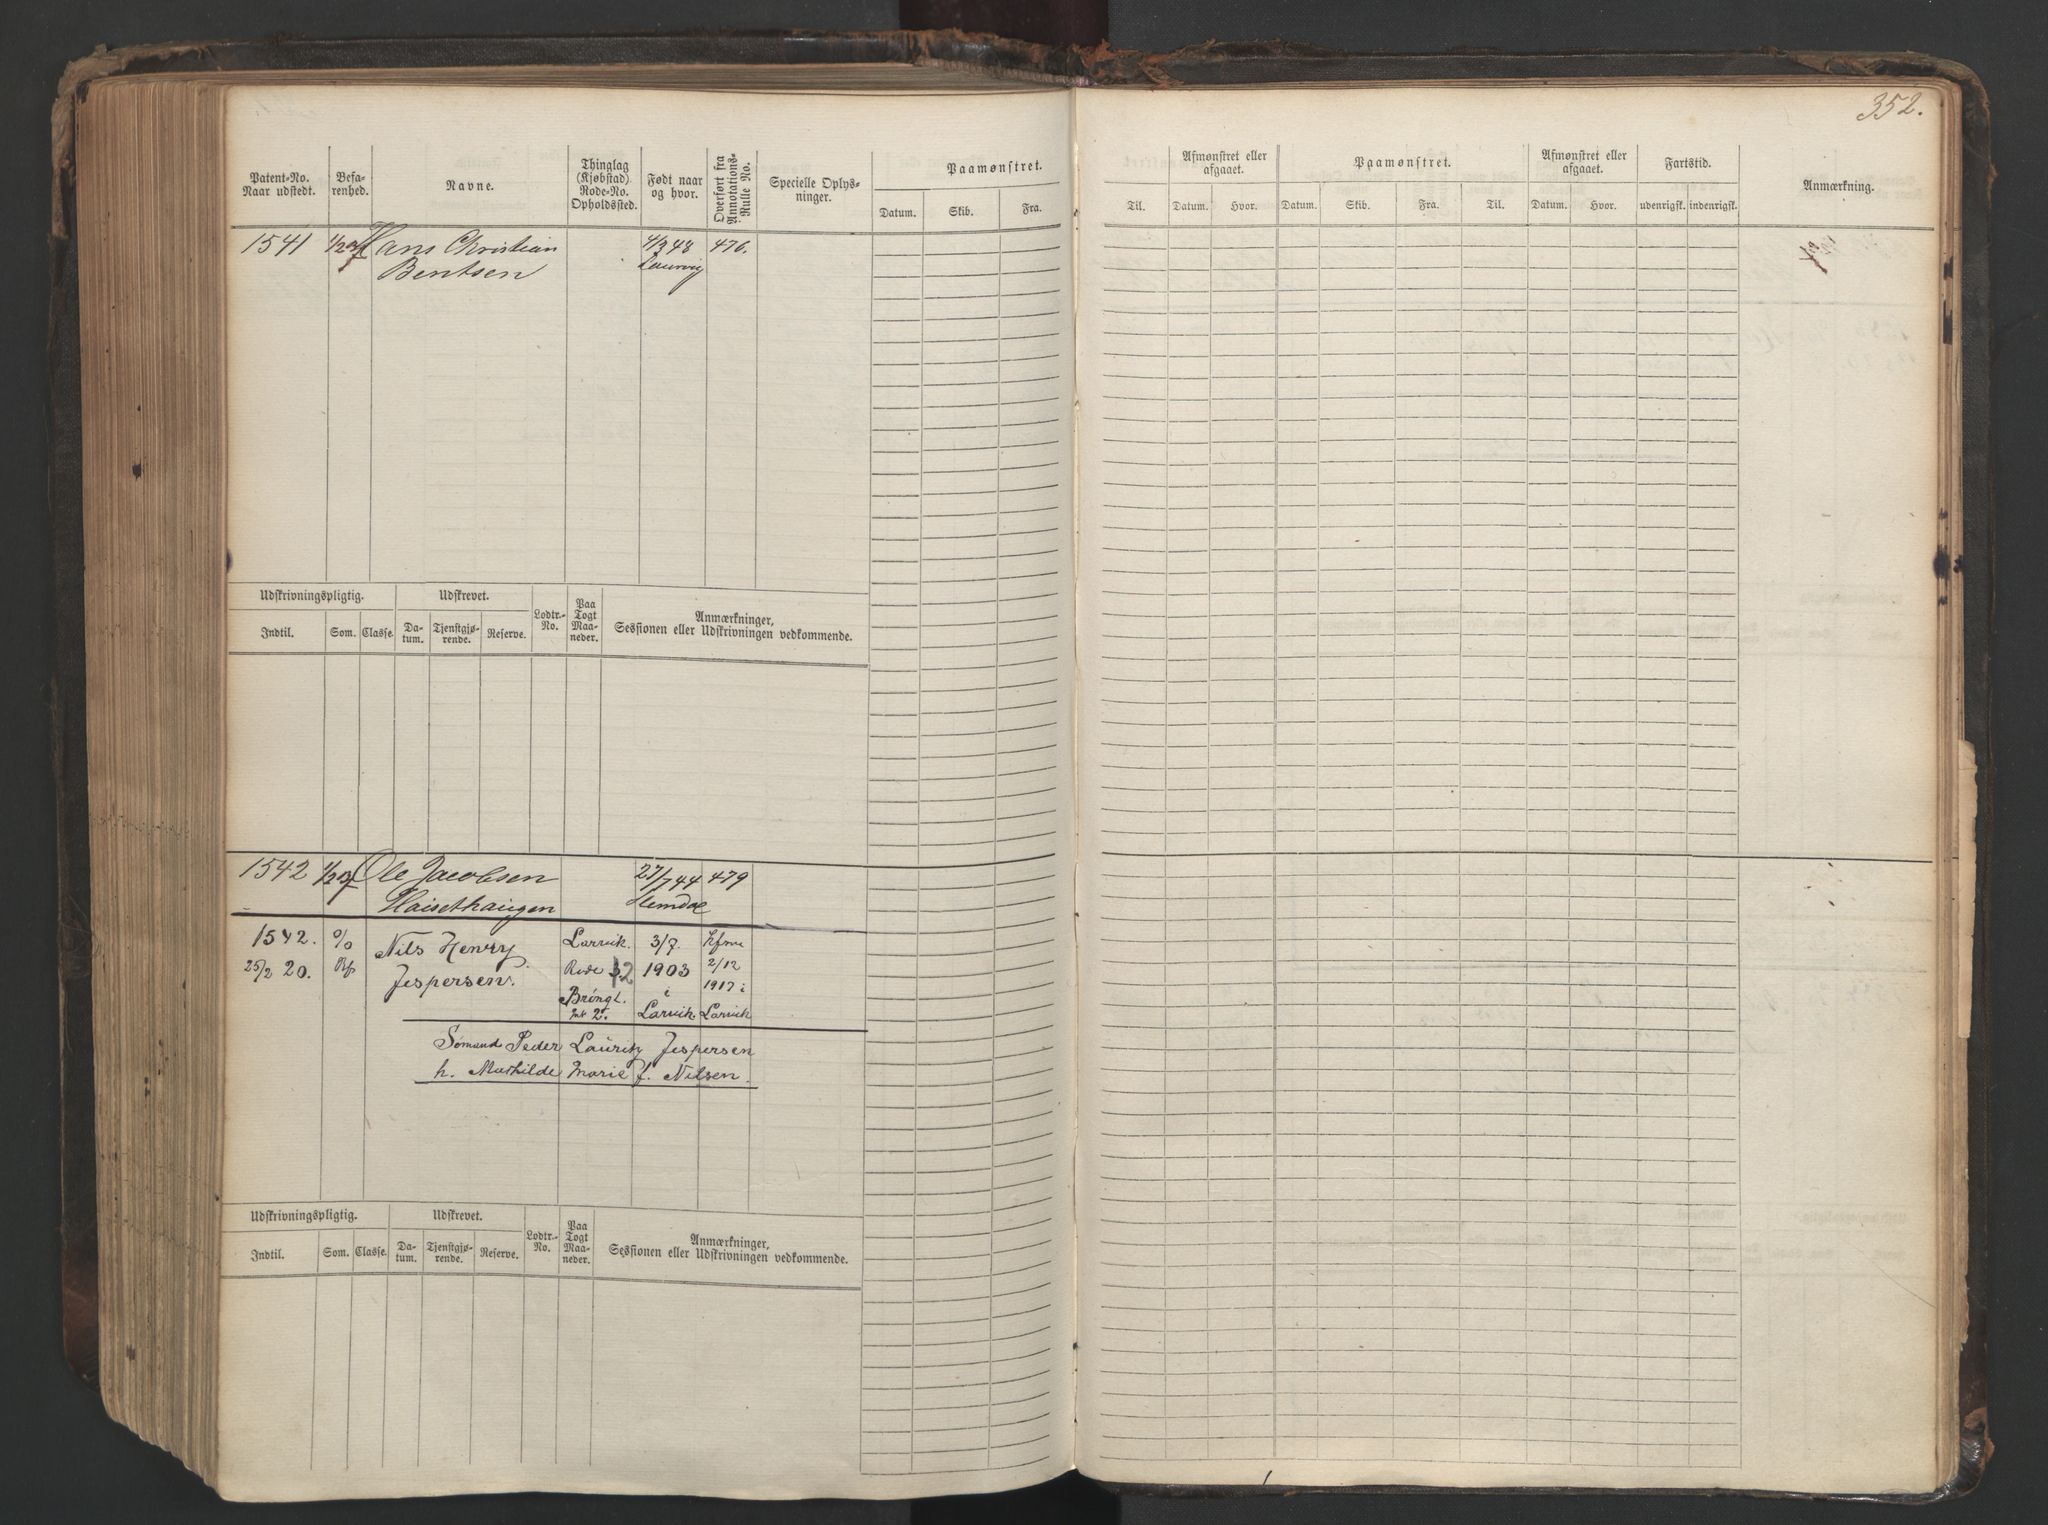 352.
Patent-No. Naar udstedt.
Befarenhed.
Navne.
Thinglag (Kjøbstad) Rode-No. Opholdssted.
Født naar og hvor.
Overført fra Annotations-Rulle No.
Specielle Oplysninger.
Paamønstret.
Datum. Skib. Fra.
Til.
Afmønstret eller afgaaet.
Datum. Hvor.
Paamønstret.
Datum. Skib. Fra. Til.
Afmønstret eller afgaaet.
Datum. Hvor.
Fartstid.
udenrigsk. indenrigsk.
Anmærkning.
1541 Hans Christian 476.
Bentsen Laurvig
Udskrivningspligtig. Udskrevet. Lodtr.-No. Paa Togt Maaneder. Anmærkninger,
Sessionen eller Udskrivningen vedkommende.
Indtil. Som. Classe. Datum. Tjenstgjørende. Reserve.
1542 Ole Jacobsen 27/7 44 479
1542. Nils Henry Larvik. 3/7. 2/12
25/2 20. Jespersen. Rode 1903 1917 i
i
Larvik. Larvik
Sømand Peder Lauritz Jespersen
h. Mathilde Marie f. Nilsen.
Udskrivningspligtig. Udskrevet. Lodtr.-No. Paa Togt Maaneder. Anmærkninger,
Sessionen eller Udskrivningen vedkommende.
Indtil. Som. Classe. Datum. Tjenstgjørende. Reserve.